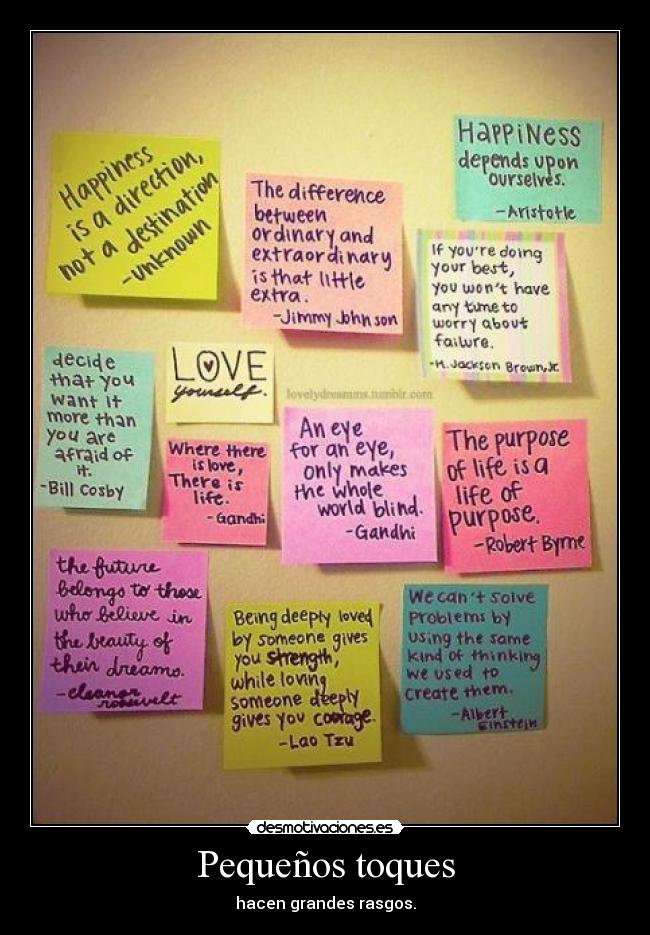 Happiness
is a direction,
not a destination
-unknown
The difference
between
ordinary and
extraordinary
is that little
extra.
-Jimmy Johnson
HAPPINESS
depends upon
ourselves.
-Aristotle
If you're doing
your best,
you won't have
any time to
worry about
failure.
-H. Jackson Brown, Jr.
decide
that you
want it
more than
you are
afraid of
it.
-Bill Cosby
LOVE
yourself.
lovelydreamms.tumblr.com
Where there
is love,
There is
life.
-Gandhi
An eye
for an eye,
only makes
the whole
world blind.
-Gandhi
The purpose
of life is a
life of
purpose.
-Robert Byrne
the future
belongs to those
who believe in
the beauty of
their dreams.
-eleanor
roosevelt
Being deeply loved
by someone gives
you strength,
while loving
someone deeply
gives you courage.
-Lao Tzu
We can't solve
problems by
using the same
kind of thinking
we used to
create them.
-Albert
Einstein
desmotivaciones.es
Pequeños toques
hacen grandes rasgos.